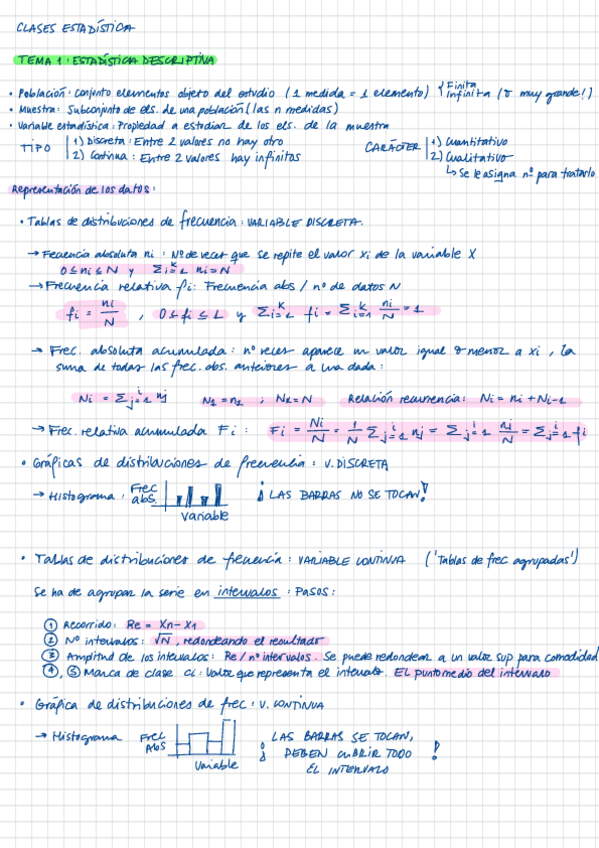 CLASES ESTADÍSTICA
TEMA 1: ESTADÍSTICA DESCRIPTIVA
• Población: Conjunto elementos objeto del estudio (1 medida = 1 elemento) { Finita
Infinita (o muy grande!)
• Muestra: Subconjunto de els. de una población (las n medidas)
• Variable estadística: Propiedad a estudiar de los els. de la muestra
TIPO | 1) Discreta: Entre 2 valores no hay otro
2) Continua: Entre 2 valores hay infinitos
CARÁCTER | 1) Cuantitativo
2) Cualitativo
↳ Se le asigna nº para tratarlo
Representación de los datos:
• Tablas de distribuciones de frecuencia: VARIABLE DISCRETA.
→ Frecuencia absoluta ni: Nº de veces que se repite el valor xi de la variable X
0 ≤ ni ≤ N y Σ i=1 k ni = N
→ Frecuencia relativa fi: Frecuencia abs / nº de datos N
fi = ni/N , 0 ≤ fi ≤ 1 y Σ i=1 k fi = Σ i=1 k ni/N = 1
→ Frec. absoluta acumulada: nº veces aparece un valor igual o menor a xi, la
suma de todas las frec. abs. anteriores a una dada:
Ni = Σ j=1 i nj N1 = n1 ; Nk = N Relación recurrencia: Ni = ni + Ni-1
→ Frec. relativa acumulada Fi: Fi = Ni/N = 1/N Σ j=1 i nj = Σ j=1 i nj/N = Σ j=1 i fi
• Gráficas de distribuciones de frecuencia: V. DISCRETA
→ Histograma: Frec abs.
variable
¡LAS BARRAS NO SE TOCAN!
• Tablas de distribuciones de frecuencia: VARIABLE CONTINUA ('Tablas de frec agrupadas')
Se ha de agrupar la serie en intervalos: PASOS:
① Recorrido: Re = Xn - X1
② Nº intervalos: √N, redondeando el resultado
③ Amplitud de los intervalos: Re / nº intervalos. Se puede redondear a un valor sup para comodidad
④, ⑤ Marca de clase ci: Valor que representa el intervalo. El punto medio del intervalo
• Gráfica de distribuciones de frec: V. CONTINUA
→ Histograma Frec Abs
Variable
¡LAS BARRAS SE TOCAN,
DEBEN CUBRIR TODO
EL INTERVALO!